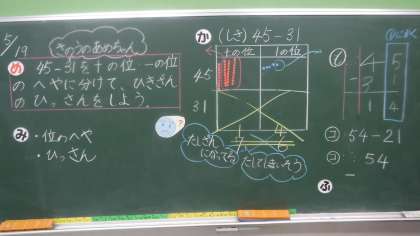 5/19
きのうのあめちゃん
め 45-31を十の位、一の位
のへやに分けて、ひきざん
のひっさんをしよう。
み ・位のへや
・ひっさん
か (しき) 45-31
十のくらい 1のくらい
45
31
7 6
たしざん
になってる
たしてしまいそう
4 5
-3 1
1 4
コ 54-21
コ 54
ふ